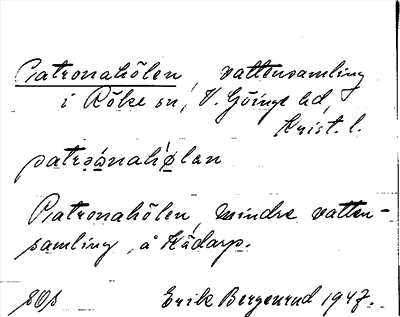 Patronahölen, vattensamling
i Röke sn, V. Göinge hd,
Krist. l.
patrånahø̀lan
Patronahölen, mindre vatten-
samling, å Hådarp.
Erik Bergenrud 1947.